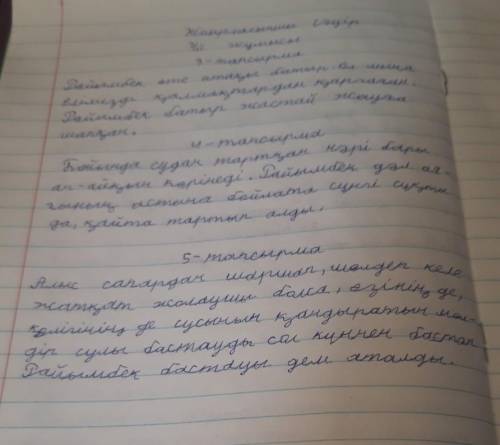 Жаңғасқын Үңір
Үй жұмысы
3-тапсырма
Райымбек өте атақы батыр. Ол
елімізді қалмақтардан қорғаған.
Райымбек батыр жастай жауға
шапқан.
4-тапсырма
Бойында судан тартқан нәрі бары
ап-айқын көрінеді. Райымбек дәл ая-
ғының астына бойлата сүңгі сұқты
да, қайта тартып алды.
5-тапсырма
Алыс сапардан шаршап, шөлдеп келе
жатқат жолаушы болса, өзінің де,
көлігінің де сусынын қандыратын мөл-
дір сулы бастауды сол күннен бастап
Райымбек бастауы деп аталды.